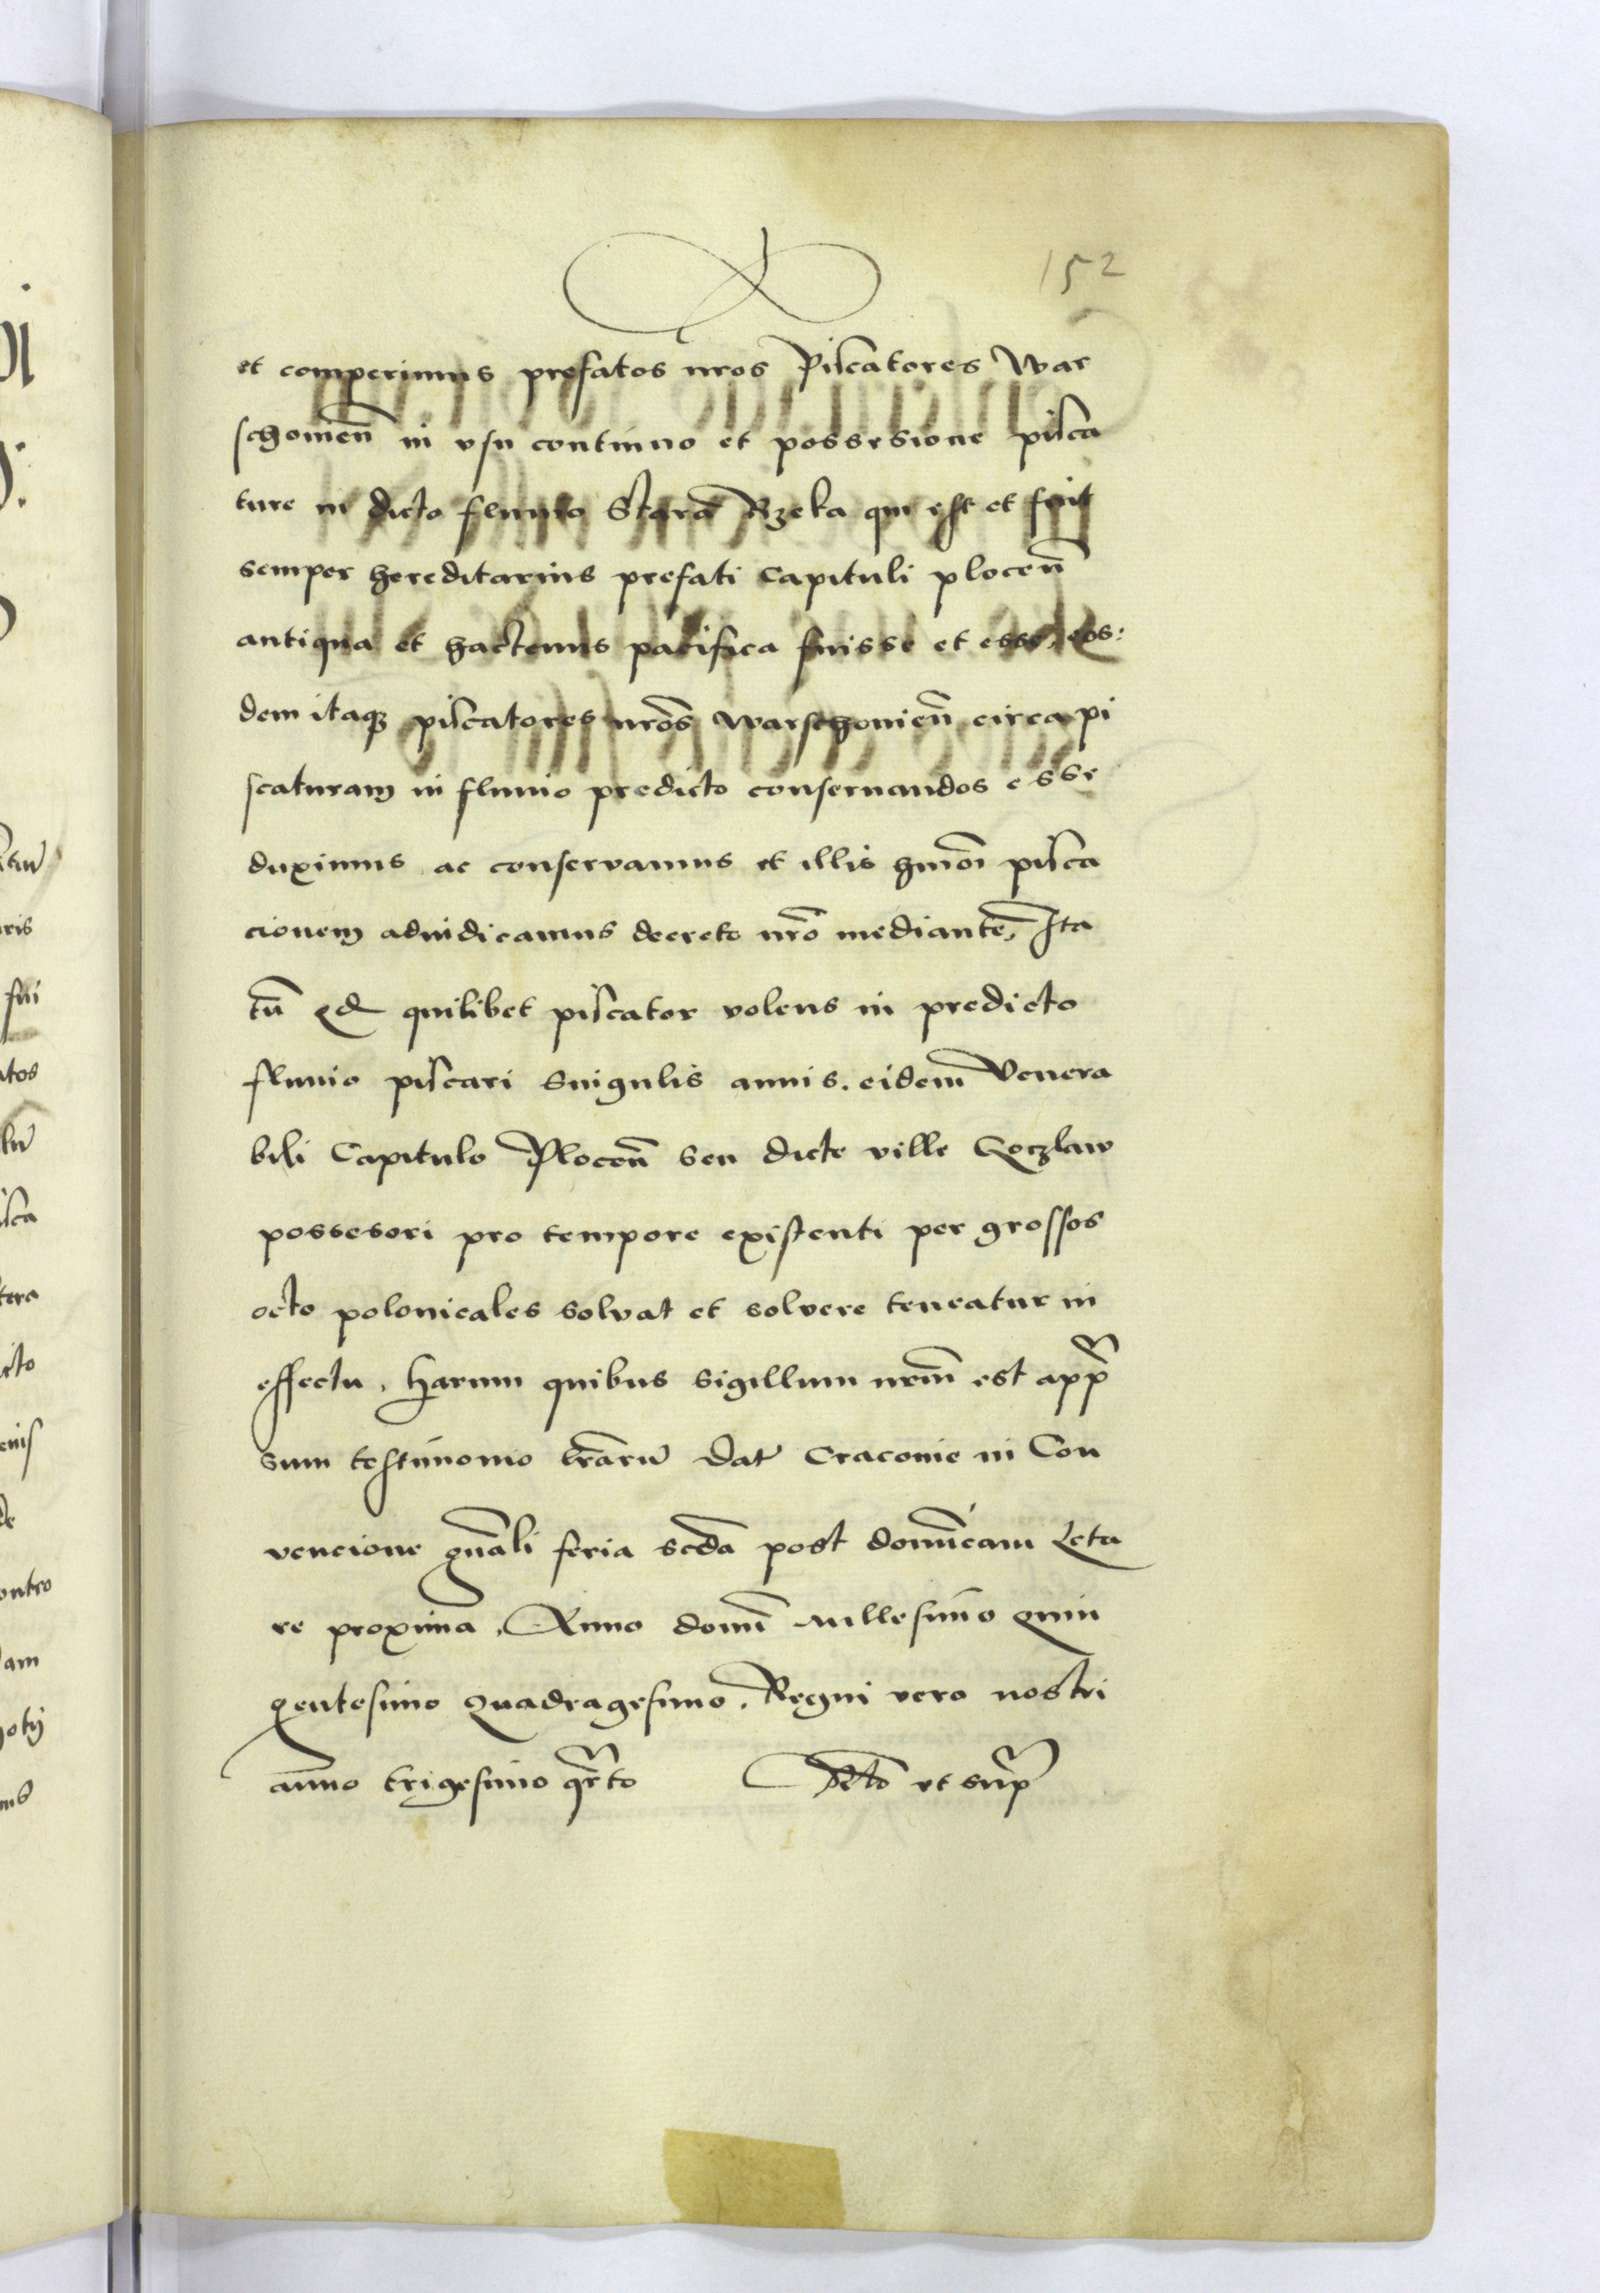 152
et comperimus prefatos nros Piscatores War
schouien̄ in vsu continuo et possesione pisca
ture in dicto fluuio Stara Rzeka qui est et fuit
semper hereditarius prefati Capituli plocen̄
antiqua et hactenus pacifica fuisse et esse, eos:
dem itaqȝ piscatores nros̄ warschouien̄ circa pi
scaturam in fluuio predicto conseruandos esse
duximus ac conservamus et illis hmōi pisca
cionem adiudicamus decreto nrō mediante, Ita
tn̄ qd quilibet piscator volens in predicto
fluuio piscari Singulis annis. eidem Venera
bili Capitulo Plocen̄ seu dicte ville Goczlaw
possesori pro tempore existenti per grossos
octo polonicales solvat et solvere teneatur in
effectu, Harum quibus sigillum nrm̄ est appr̄
sum testimonio lrār̄u Dat Cracouie in Con
vencione gn̄ali feria scdā post domīcam Leta
re proxima, Anno domī millesimo quin
gentesimo Quadragesimo. Regni vero nostri
anno trigesimo qr̄to et sup̄